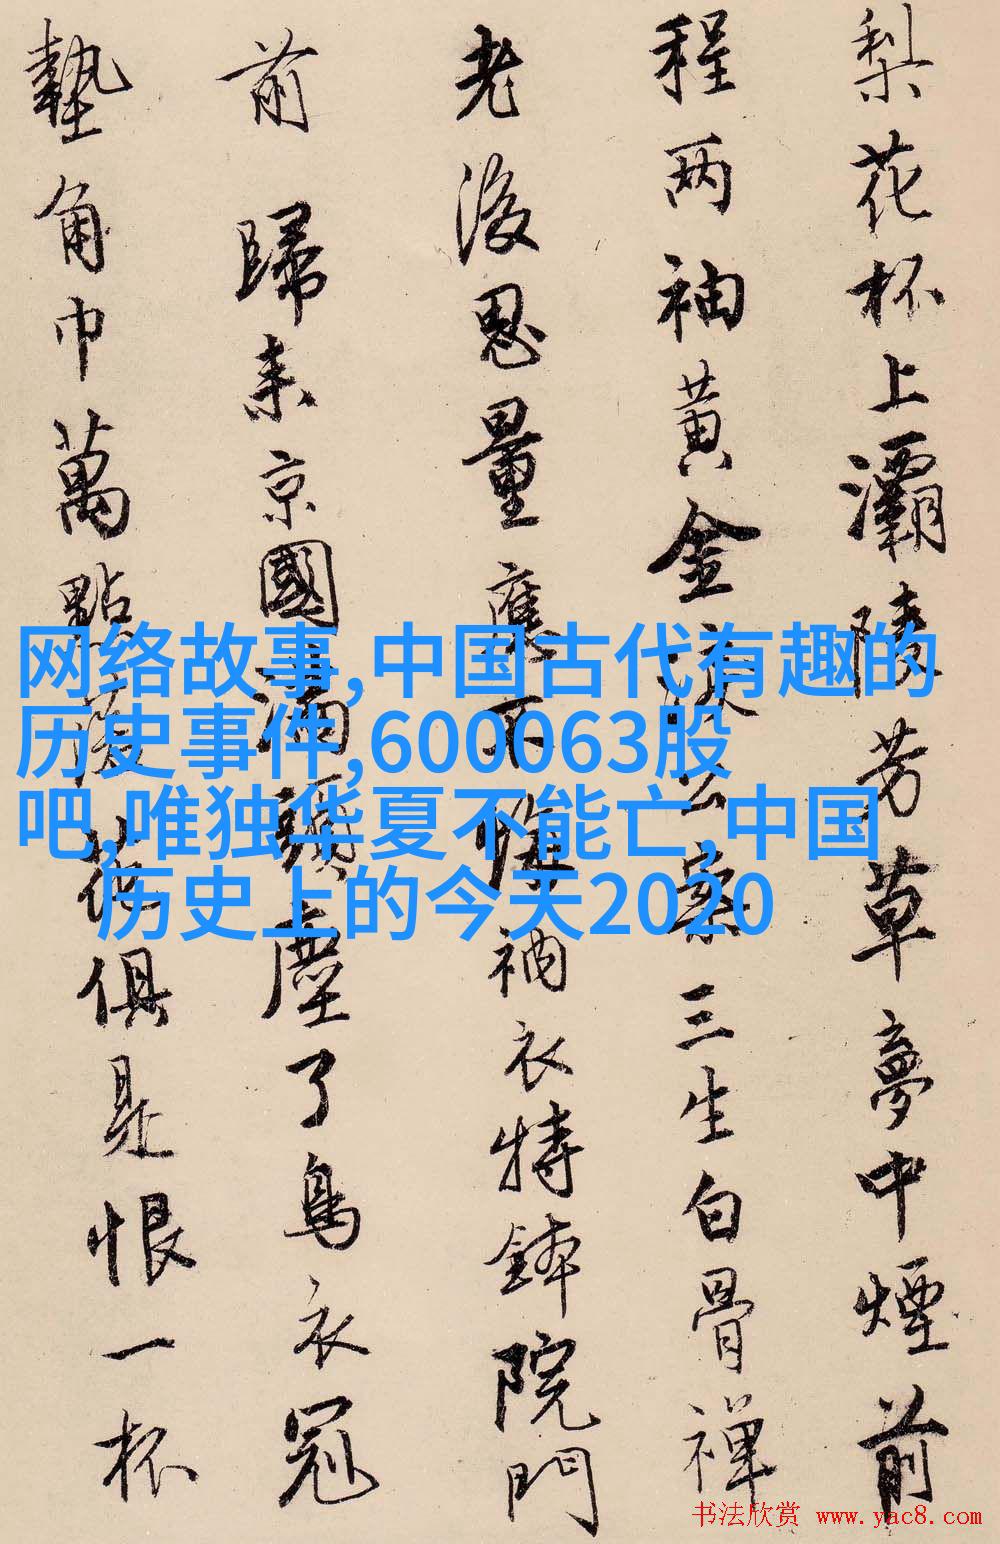 梨花杯上灞陵芳草夢中煙前
程两袖黄金淚公案三生白骨禪
老後思量應不悔衲衣持鉢院門
前 歸来京國滿頭塵了烏衣冠
墊角巾萬點落花俱是恨一杯
网络故事,中国古代有趣的
历史事件,600063股
吧,唯独华夏不能亡,中国
历史上的今天2020
书法欣赏 www.yac8.com